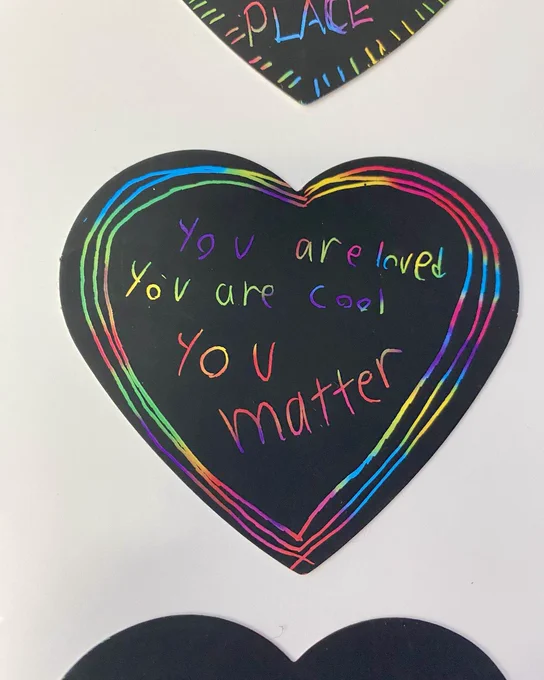 PLACE
You are loved
You are cool
You
matter